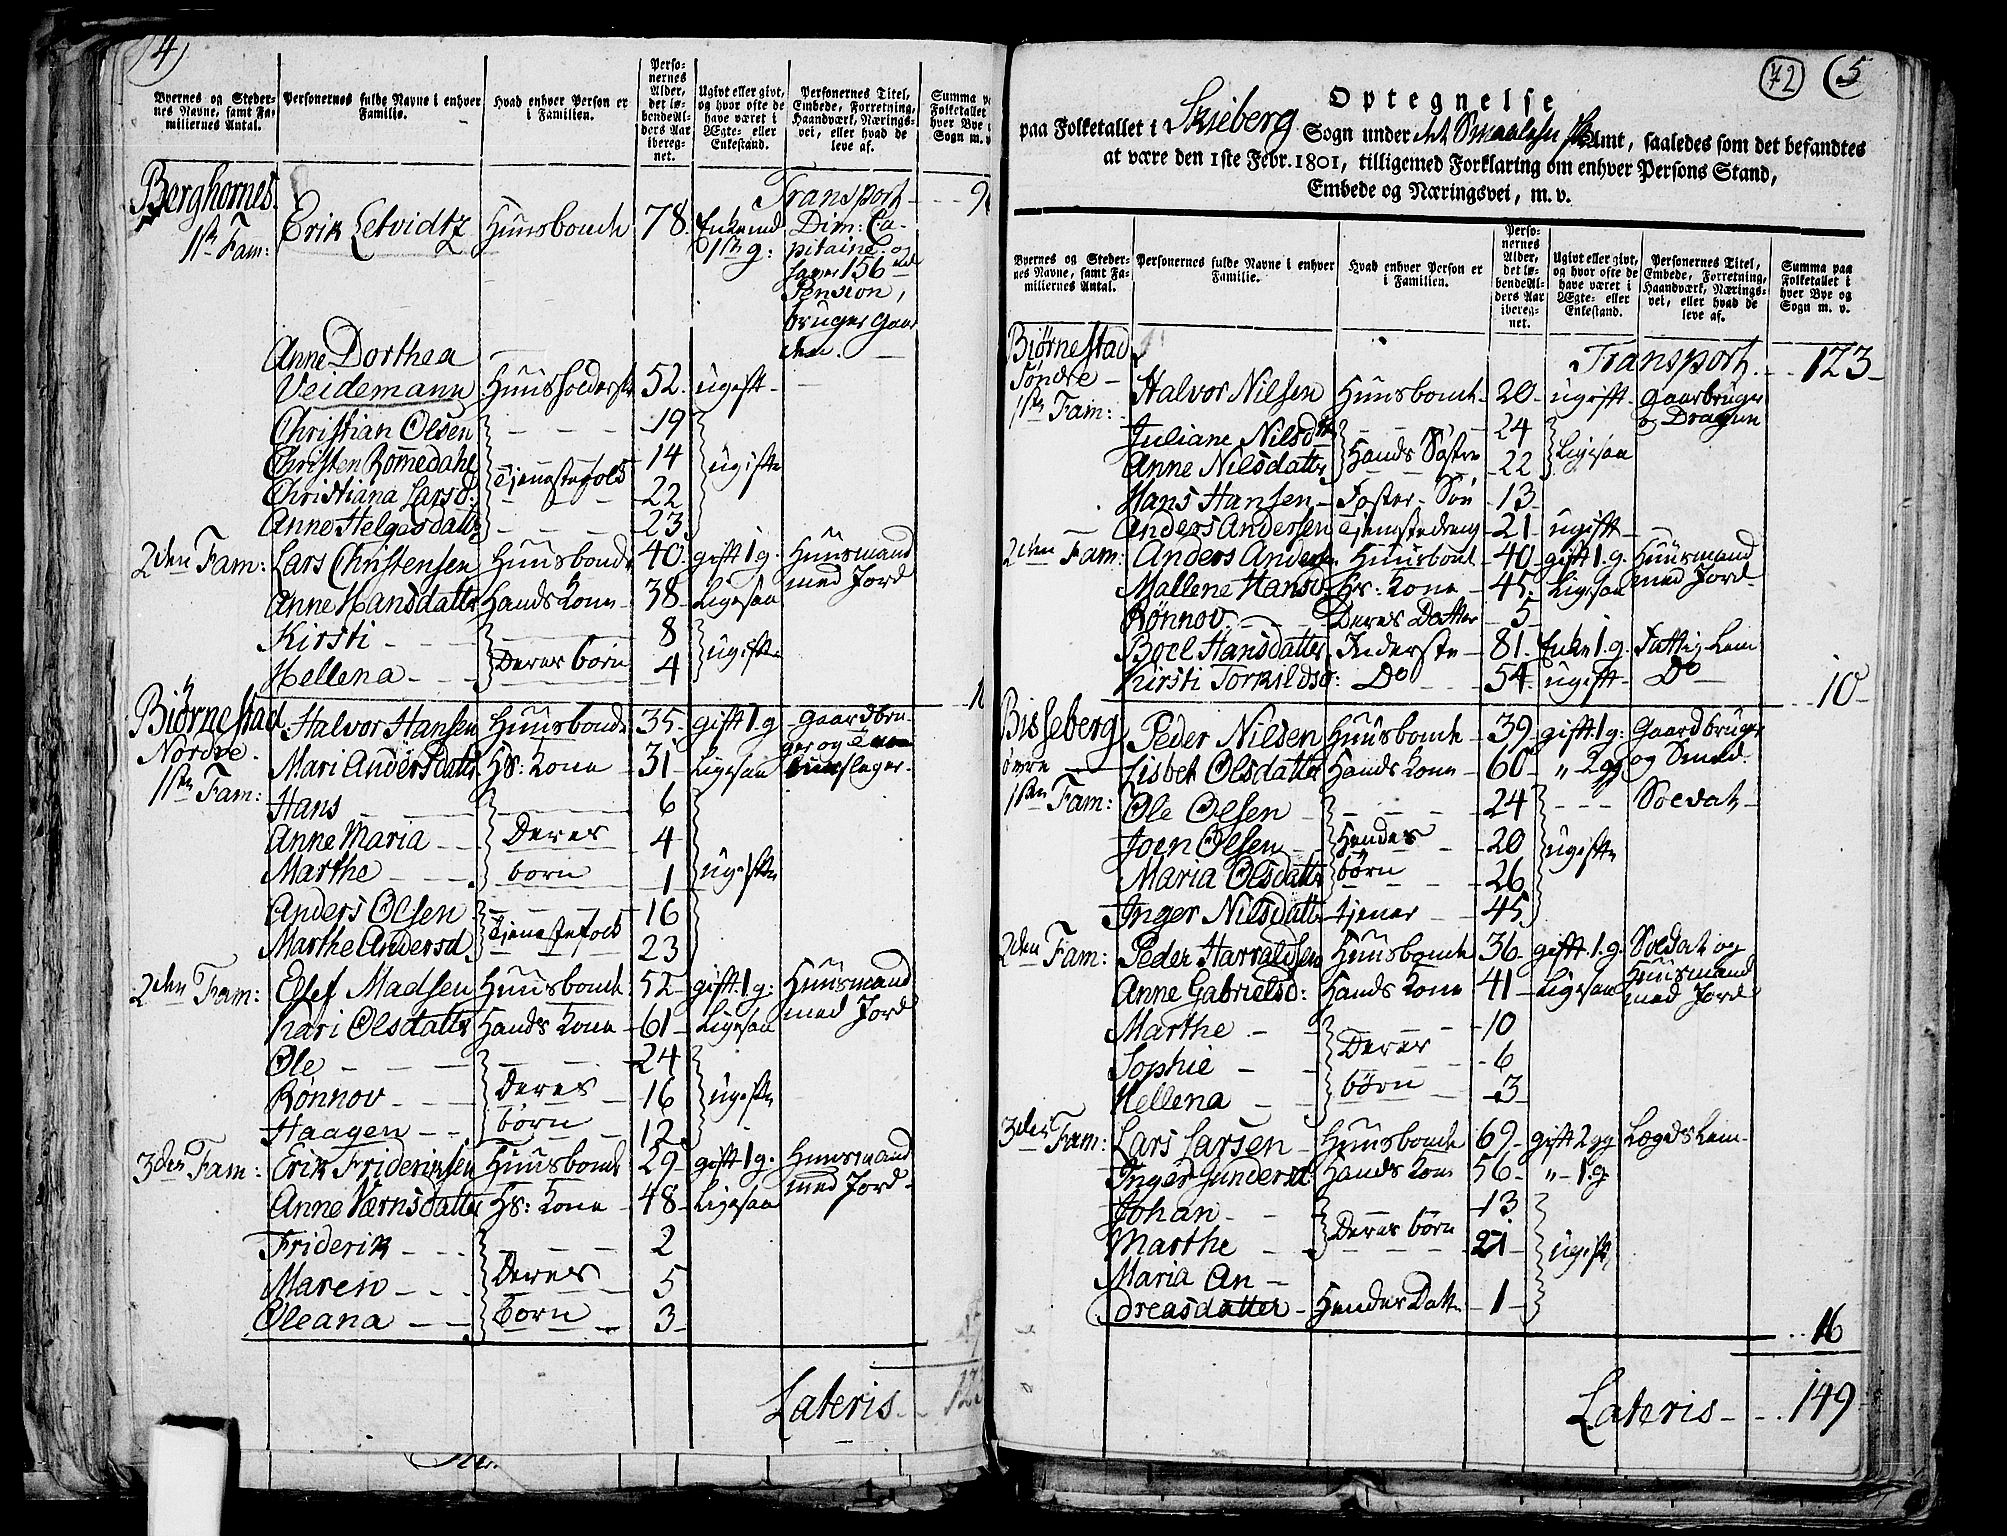 4)
Byernes og Steder-
nes Navne, samt Fa-
miliernes Antal.
Personernes fulde Navne i enhver
Familie.
Hvad enhver Person er
i Familien.
Perso-
nernes
Alder,
det lø-
bende Al-
ders Aar
ibereg-
net.
Ugivt eller givt,
og hvor ofte de
have været i
Ægte- eller
Enkestand.
Personernes Titel,
Embede, Forretning,
Haandværk, Nærings-
vei, eller hvad de
leve af.
Summa p
Folketallet
hver Bye
Sogn m. v
Berghornes. Transport - - - 9
1ste Fam: Erik Letvidtz Huusbonde 78. Enkemand Dim: Ca-
1ste g: pitaine og
faaer 156 rd
Pension,
bruger Gaar
den. -
Anne Dorthea
Veidemann Huusholderske 52. ugift -
Christian Olsen - - - 19
Christen Romedahl 14
Tjenestefolk ugifte
Christiana Larsd: 22
Anne Helgesdatter - - - 23
2den Fam: Lars Christensen Huusbonde 40. gift 1 g. Huusmand
med Jord
Anne Hansdatter Hands Kone - 38 - Ligesaa
Kirsti - - - 8
Deres børn ugifte
Hellena - - - 4
Biørnestad Halvor Hansen Huusbonde 35. gift 1 g Gaardbru-
Nordre. ger og
Mari Andersdatter Hs: Kone 31 - Ligesaa
1ste Fam:
Hans 6
Anne Maria - - Deres 4
Marthe - - - born 1 ugifte
Anders Olsen - - - 16
Tjenestefolk
Marthe Andersd. 23
2den Fam: Elef Madsen Huusbonde 52 - gift 1 g: Huusmand
med Jord
Kari Olsdatter Hands Kone - 61 - Ligesaa
Ole - - - 24
Rønnov - - - Deres 16 ugifte
Haagen - - børn 12
3den Fam: Erik Friderichsen Huusbonde 29 - gift 1 g. Huusmand
med Jord -
Anne Værnsdatter Hs: Kone - 48 - Ligesaa
Friderik - - - 2
Maren - - - Deres 5
Oleana - - born 3
Lateris - - 123
72 (5
Optegnelse
paa Folketallet i Skieberg Sogn under det Smaalehnske Amt, saaledes som det befandtes
at være den 1ste Febr. 1801, tilligemed Forklaring om enhver Persons Stand,
Embede og Næringsvei, m. v.
Byernes og Steder-
nes Navne, samt Fa-
miliernes Antal.
Personernes fulde Navne i enhver
Familie.
Hvad enhver Person er
i Familien.
Perso-
nernes
Alder,
det lø-
bende Al-
ders Aar
ibereg-
net.
Ugivt eller givt,
og hvor ofte de
have været i
Ægte- eller
Enkestand.
Personernes Titel,
Embede, Forretning,
Haandværk, Nærings-
vei, eller hvad de
leve af.
Summa paa
Folketallet i
hver Bye og
Sogn m. v.
Biørnestad Transport. - - 123 -
Søndre - Halvor Nilsen Huusbonde - 20 - ugift - Gaarbruger
1ste Fam: og Dragun
Juliane Nilsdtr 24
Hands Søstre Ligesaa
Anne Nilsdatter 22
Hans Hansen - Foster - Søn - 13 -
Anders Andersen Tjenestedreng - 21 - ugift -
2den Fam: Anders Anders. Huusbond - 40 - gift 1. g. Huusmand
Mallene Hansd. Hs: Kone - 45. Ligesaa med Jord
Rønnov. - - Deres Datter 5 -
Boel Hansdatter Inderste - 81. Enke 1. g. Fattig Lem
Kirsti Torkildsd: Do - 54 - ugift - Do
10 -
Bisseberg Peder Nilsen Huusbonde - 39 - gift 1. g: Gaardbruger
øvre - Lisbet Olsdatter Hands Kone - 60 - „ 2 gg og Smed.
1ste Fam: Ole Olsen - - - 24 - - - Soldat -
Joen Olsen - Hendes - 20 ugifte
Maria Olsdatter børn - 26
Inger Nilsdatter tjener - - 45
2den Fam: Peder Harraldsen Huusbonde 36 - gift 1. g. Soldat og
Huusmand
Anne Gabrielsd: Hands Kone 41 - Ligesaa med Jord
Marthe - - 10
Sophie - Deres - 6
Hellena - børn - 3
3den Fam: Lars Larsen - Huusbonde 69 - gift 2 gg Lægds Lem -
Inger Gundersd Hands Kone 56 - „ - 1 g
Johan - - 13
Deres børn
Marthe - 21 - ugifte
Maria An -
dreasdatter - Hendes Datter 1 -
. . 16
Lateris - - . . 149